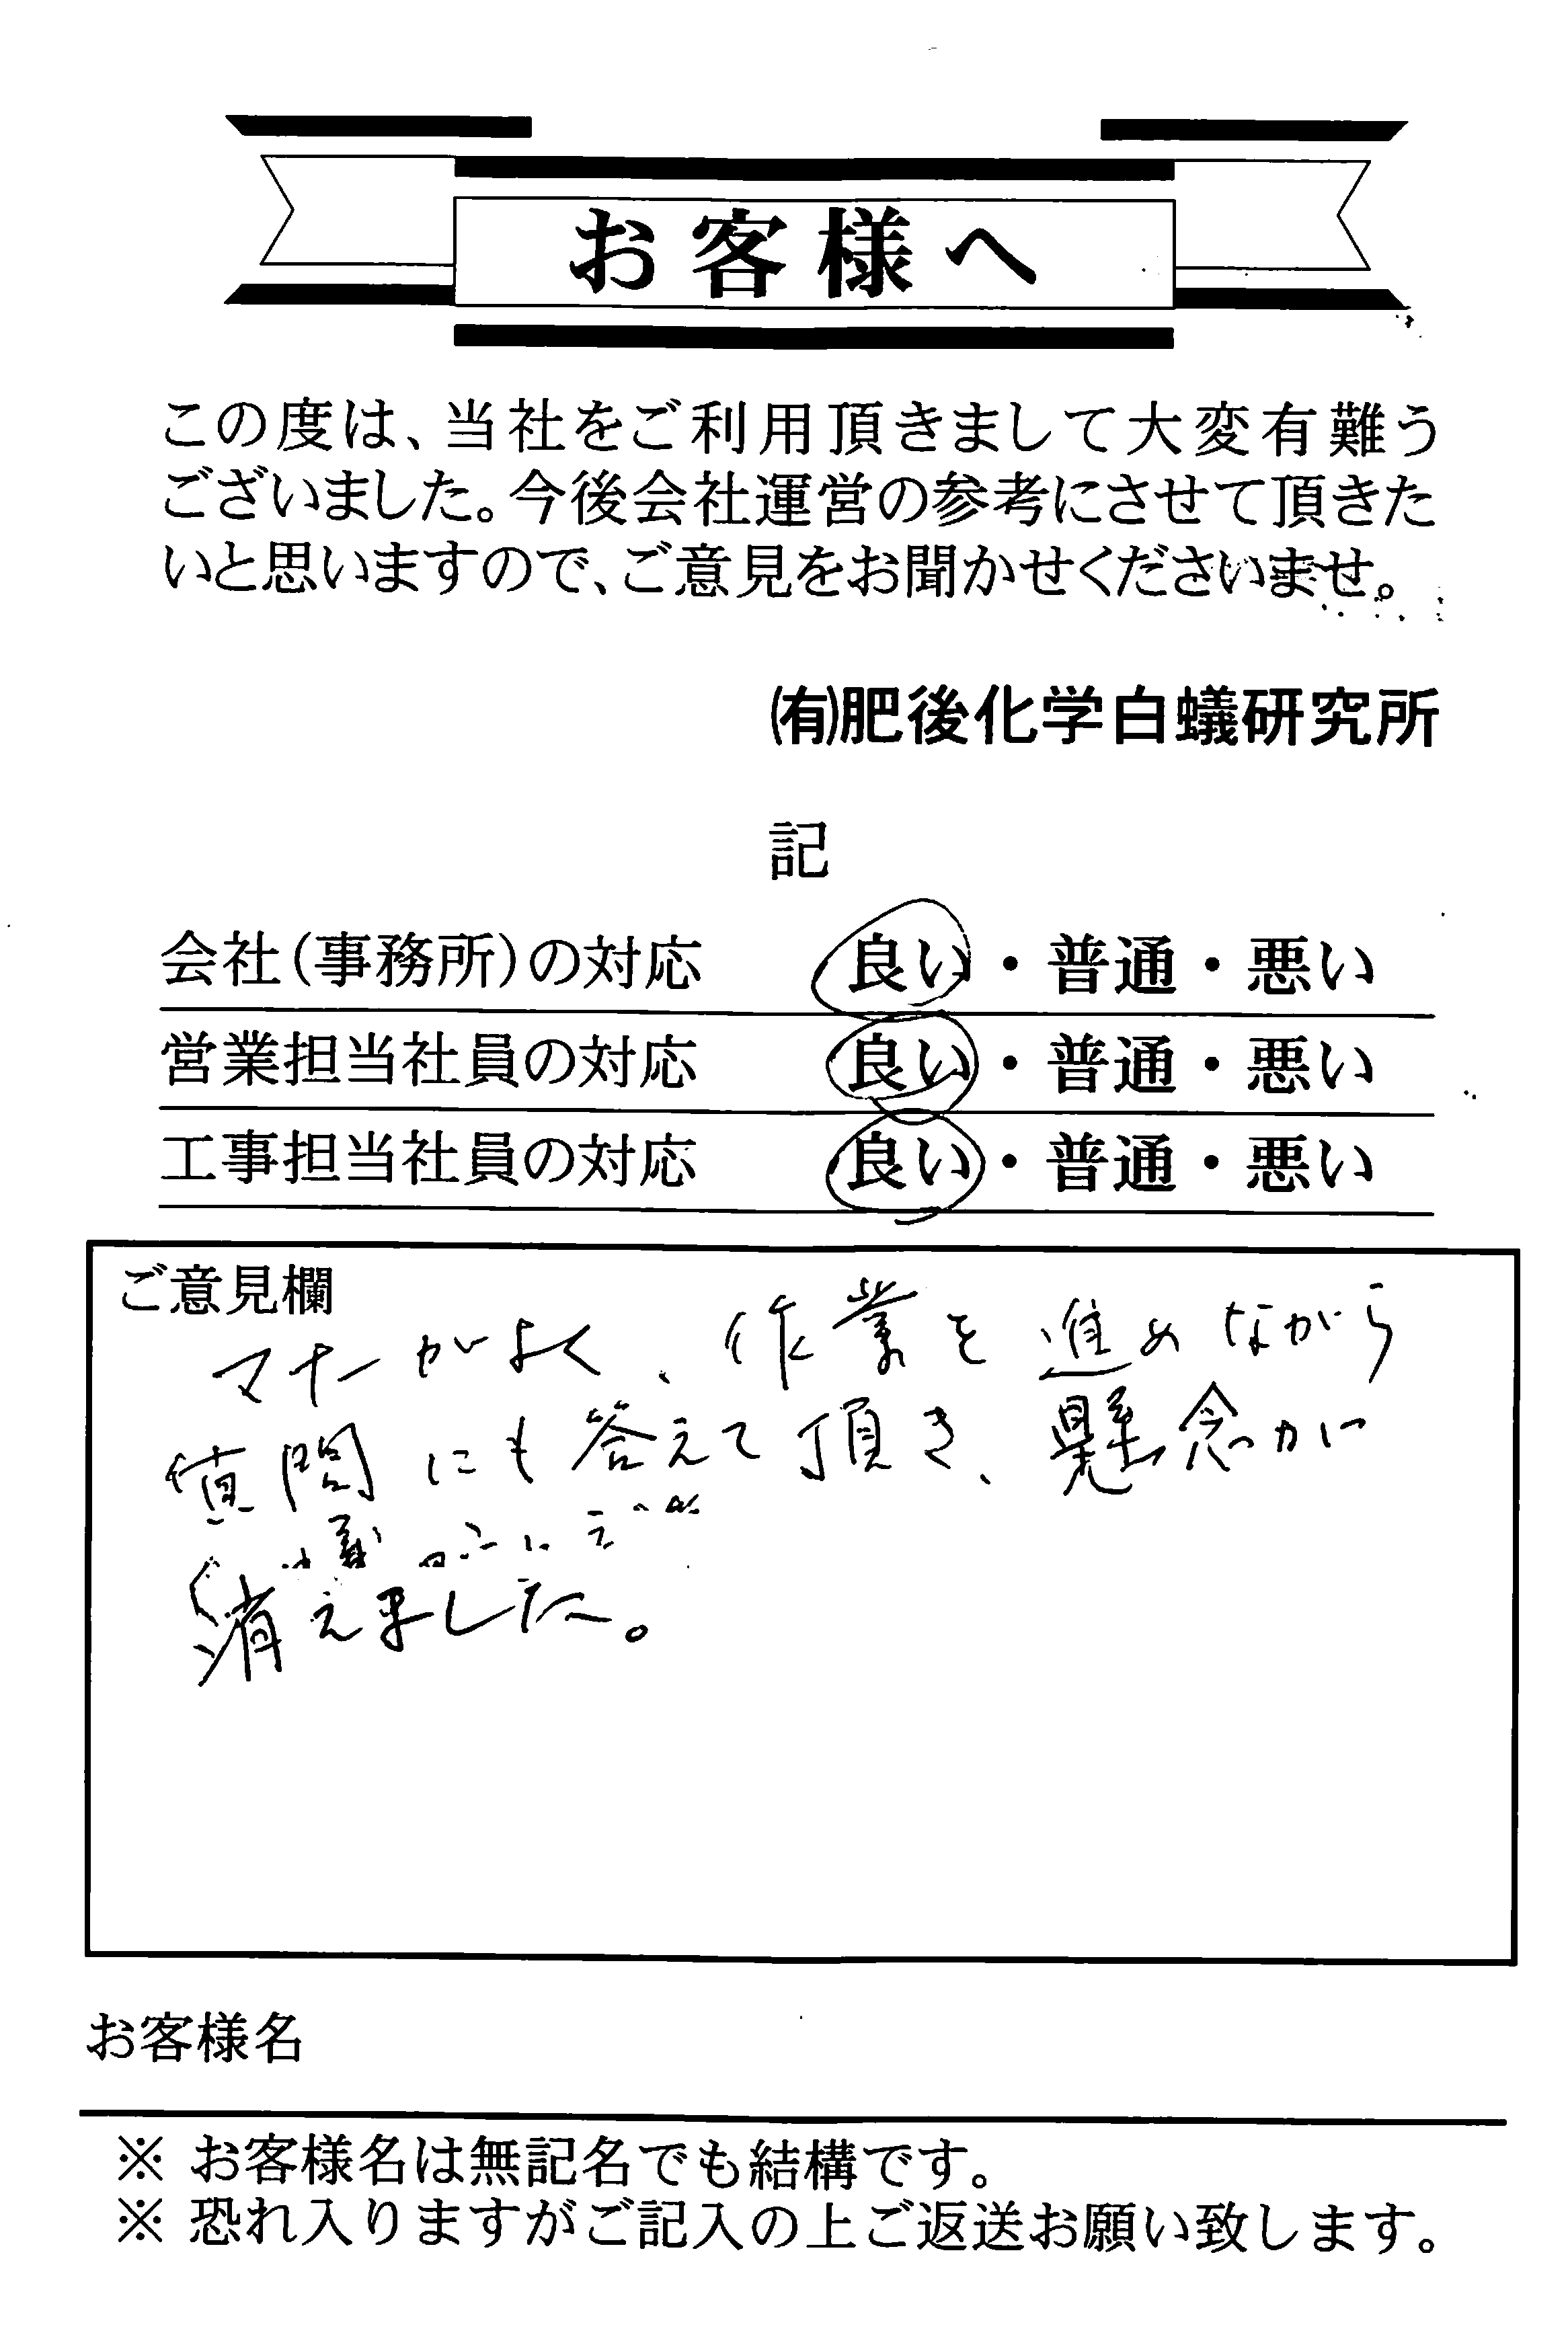 お客様へ
この度は、当社をご利用頂きまして大変有難う
ございました。今後会社運営の参考にさせて頂きた
いと思いますので、ご意見をお聞かせくださいませ。
㈲肥後化学白蟻研究所
記
会社(事務所)の対応 良い・普通・悪い
営業担当社員の対応 良い・普通・悪い
工事担当社員の対応 良い・普通・悪い
ご意見欄
マナーがよく、作業を進めながら
質問にも答えて頂き、懸念が
消えました。
お客様名
※ お客様名は無記名でも結構です。
※ 恐れ入りますがご記入の上ご返送お願い致します。